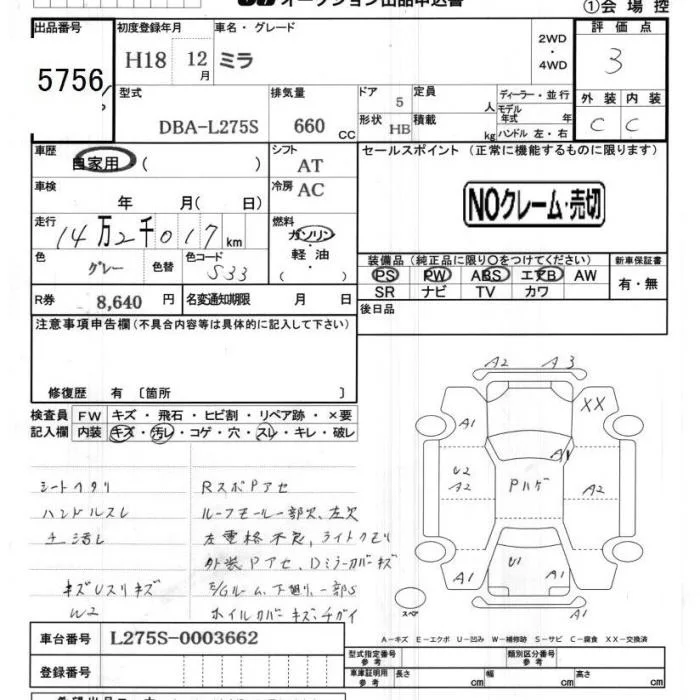 オークション出品申込書
①会場控
出品番号
5756
初度登録年月
H18 12月
車名・グレード
ミラ
2WD
・
4WD
評価点
3
型式
DBA-L275S
排気量
660 CC
ドア
5
定員
人
ディーラー・並行
モデル年式 年
形状
HB
積載
kg
ハンドル 左・右
外装 内装
C C
車歴
自家用 ( )
シフト
AT
セールスポイント (正常に機能するものに限ります)
車検
年 月( 日)
冷房
AC
NOクレーム・売切
走行
14万2千017km
燃料
ガソリン
・
軽油
( )
色
グレー
色替
色コード
S33
装備品(純正品に限り○をつけてください)
新車保証書
PS PW ABS エアB AW
SR ナビ TV カワ
有・無
R券
8,640 円
名変通知期限 月 日
後日品
注意事項申告欄(不具合内容等は具体的に記入して下さい)
修復歴 有 〔箇所 〕
検査員記入欄
FW キズ・飛石・ヒビ割・リペア跡・×要
内装 キズ・汚レ・コゲ・穴・スレ・キレ・破レ
シートヘタリ
ハンドルスレ
土汚レ
キズUスリキズ
W2
RスポPアセ
ルーフモール一部欠、左欠
左電格不良、ライトクモリ
外装Pアセ、Dミラーカバーキズ
E/Gルーム、下廻リ、一部S
ホイルカバーキズ、チガイ
A2 A3
XX
A1
A1
U2
A2
Pハゲ
A2
U1
A1
A1
A1
スペア
A-キズ E-エクボ U-凹み W-補修跡 S-サビ C-腐食 XX-交換済
車台番号
L275S-0003662
型式指定番号
参考
類別区分番号
参考
登録番号
車庫証明用
参考
長さ cm
幅 cm
高さ cm